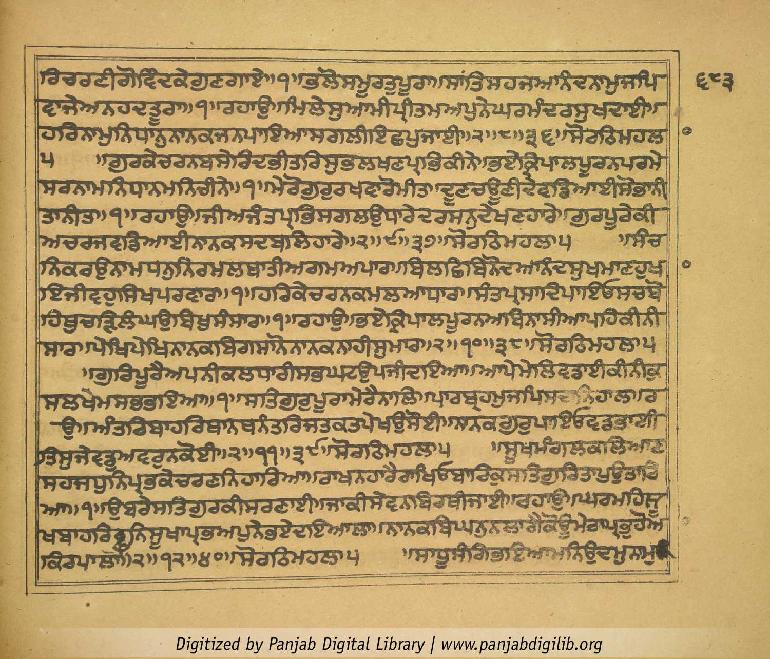 ੬੮੩
ਰਿਚਰਣੀਗੋਵਿੰਦਕੇਗੁਣਗਾਏ॥੧॥ਭਲੋਸਮੂਰਤੁਪੂਰਾ॥ਸਾਂਤਿਸਹਜਆਨੰਦਨਾਮੁਜਪਿ
ਵਾਜੇਅਨਹਦਤੂਰਾ॥੧॥ਰਹਾਉ॥ਮਿਲੇਸੁਆਮੀਪ੍ਰੀਤਮਅਪੁਨੇਘਰਮੰਦਰਸੁਖਦਾਈ॥
ਹਰਿਨਾਮੁਨਿਧਾਨੁਨਾਨਕਜਨਪਾਇਆਸਗਲੀਇਛਪੁਜਾਈ॥੨॥੮॥੩੬॥ਸੋਰਠਿਮਹਲਾ
੫ ॥ਗੁਰਕੇਚਰਨਬਸੇਰਿਦਭੀਤਰਿਸੁਭਲਖਣਪ੍ਰਭਿਕੀਨੇ॥ਭਏਕ੍ਰਿਪਾਲਪੂਰਨਪਰਮੇ
ਸਰਨਾਮਨਿਧਾਨਮਨਿਚੀਨੇ॥੧॥ਮੇਰੋਗੁਰੁਰਖਵਾਰੋਮੀਤ॥ਦੂਣਚਊਣੀਦੇਵਡਿਆਈਸੋਭਾਨੀ
ਤਾਨੀਤਾ॥੧॥ਰਹਾਉ॥ਜੀਅਜੰਤਪ੍ਰਭਿਸਗਲਉਧਾਰੇਦਰਸਨੁਦੇਖਣਹਾਰੇ॥ਗੁਰਪੂਰੇਕੀ
ਅਚਰਜਵਡਿਆਈਨਾਨਕਸਦਬਲਿਹਾਰੇ॥੨॥੯॥੩੭॥ਸੋਰਠਿਮਹਲਾ੫ ॥ਸੰਚ
ਨਿਕਰਉਨਾਮਧਨੁਨਿਰਮਲਥਾਤੀਅਗਮਅਪਾਰਾ॥ਬਿਲਛਿਬਿਨੋਦਆਨੰਦਸੁਖਮਾਣਹੁਖ
ਇਜੀਵਹੁਸਿਖਪਰਵਾਰਾ॥੧॥ਹਰਿਕੇਚਰਨਕਮਲਆਧਾਰਾ॥ਸੰਤਪ੍ਰਸਾਦਿਪਾਇਓਸਚਬੋ
ਹਿਥੁਚੜਿਲੰਘਉਬਿਖੁਸੰਸਾਰਾ॥੧॥ਰਹਾਉ॥ਭਏਕ੍ਰਿਪਾਲਪੂਰਨਅਬਿਨਾਸੀਆਪਹਿਕੀਨੀ
ਸਾਰਾ॥ਪੇਖਿਪੇਖਿਨਾਨਕਬਿਗਸਾਨੋਨਾਨਕਨਾਹੀਸੁਮਾਰਾ॥੨॥੧੦॥੩੮॥ਸੋਰਠਿਮਹਲਾ੫
॥ਗੁਰਿਪੂਰੈਅਪਨੀਕਲਧਾਰੀਸਭਘਟਉਪਜੀਦਇਆ॥ਆਪੇਮੇਲਿਵਡਾਈਕੀਨੀਕੁ
ਸਲਖੇਮਸਭਭਇਆ॥੧॥ਸਤਿਗੁਰੁਪੂਰਾਮੇਰੈਨਾਲਿ॥ਪਾਰਬ੍ਰਹਮੁਜਪਿਸਦਾਨਿਹਾਲ॥ਰ
ਉ॥ਅੰਤਰਿਬਾਹਰਿਥਾਨਥਨੰਤਰਿਜਤਕਤਪੇਖਉਸੋਈ॥ਨਾਨਕਗੁਰੁਪਾਇਓਵਡਭਾਗੀ
ਤਿਸੁਜੇਵਡੁਅਵਰੁਨਕੋਈ॥੨॥੧੧॥੩੯॥ਸੋਰਠਿਮਹਲਾ੫ ॥ਸੂਖਮੰਗਲਕਲਿਆਣ
ਸਹਜਧੁਨਿਪ੍ਰਭਕੇਚਰਣਨਿਹਾਰਿਆ॥ਰਾਖਨਹਾਰੈਰਾਖਿਓਬਾਰਿਕੁਸਤਿਗੁਰਿਤਾਪੁਉਤਾਰਿ
ਆ॥੧॥ਉਬਰੇਸਤਿਗੁਰਕੀਸਰਣਾਈ॥ਜਾਕੀਸੇਵਨਬਿਰਥੀਜਾਈ॥ਰਹਾਉ॥ਘਰਮਹਿਸੂ
ਖਬਾਹਰਿਫੁਨਿਸੂਖਾਪ੍ਰਭਅਪੁਨੇਭਏਦਇਆਲਾ॥ਨਾਨਕਬਿਘਨੁਨਲਾਗੈਕੋਊਮੇਰਾਪ੍ਰਭੁਹੋਆ
ਕਿਰਪਾਲਾ॥੨॥੧੨॥੪੦॥ਸੋਰਠਿਮਹਲਾ੫ ॥ਸਾਧੂਸੰਗਿਭਇਆਮਨਿਉਦਮੁਨਾਮੁ
Digitized by Panjab Digital Library | www.panjabdigilib.org